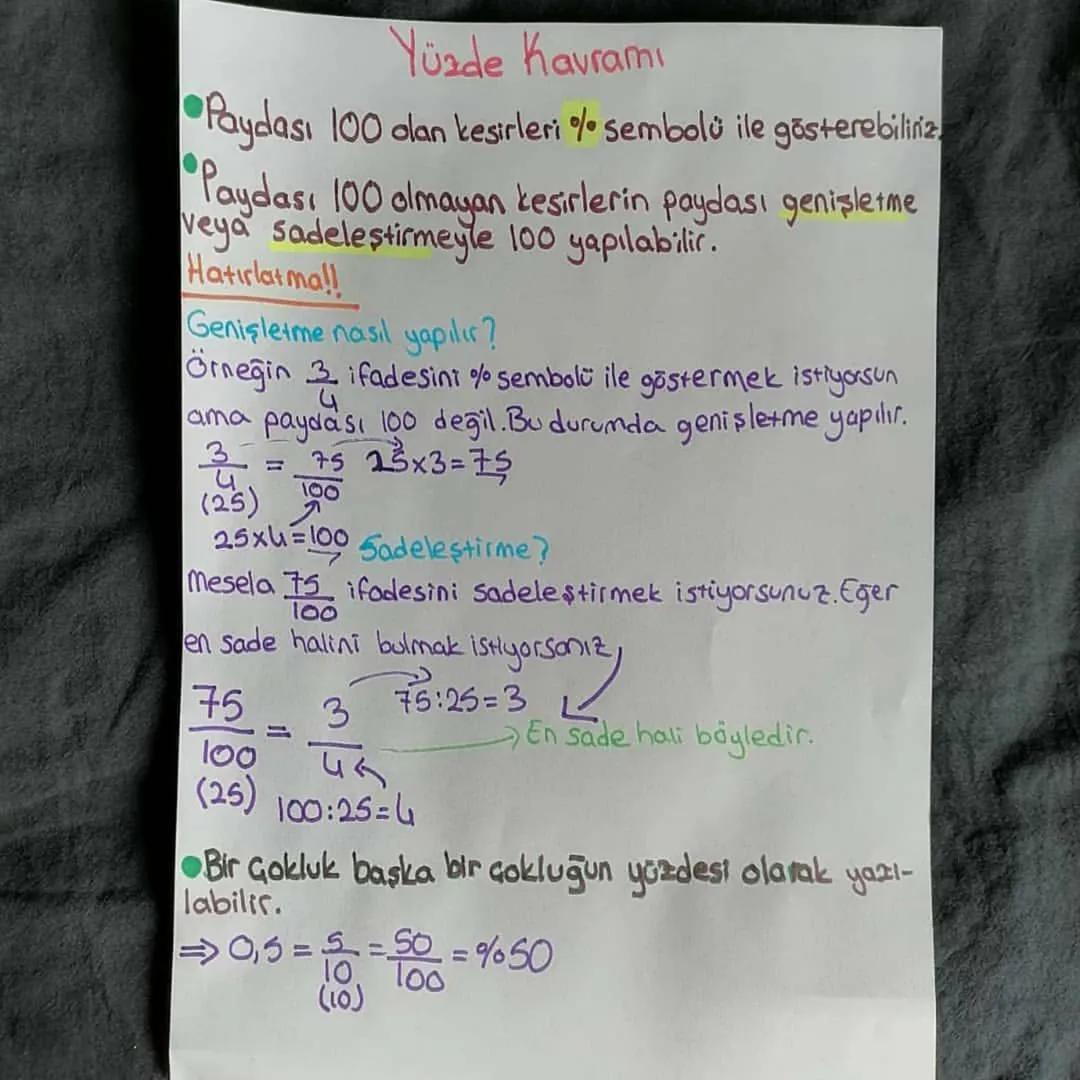 Yüzde Kavramı
Paydası 100 olan kesirleri % sembolü ile gösterebiliriz.
Paydası 100 olmayan kesirlerin paydası genişletme
veya sadeleştirmeyle 100 yapılabilir.
Hatırlatma!!
Genişletme nasıl yapılır?
Örneğin 3/4 ifadesini % sembolü ile göstermek istiyorsun
ama paydası 100 değil. Bu durumda genişletme yapılır.
3/4 = 75/100 25x3=75
(25)
25x4=100
Sadeleştirme?
Mesela 75/100 ifadesini sadeleştirmek istiyorsunuz. Eğer
en sade halini bulmak istiyorsanız,
75/100 = 3/4 75:25=3
En sade hali böyledir.
(25) 100:25=4
Bir çokluk başka bir çokluğun yüzdesi olarak yazı-
labilir.
⇒ 0,5 = 5/10 = 50/100 = %50
(10)